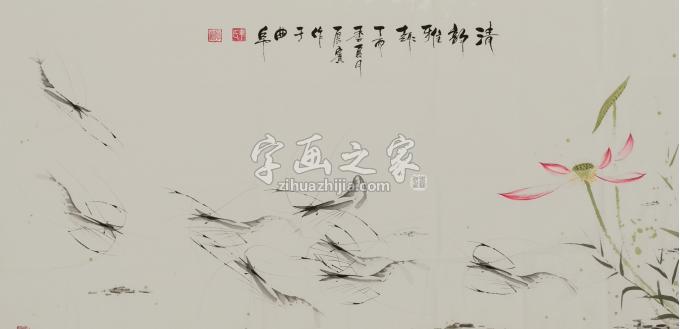 清韵雅趣丁酉季夏月作于曲阜
字画之家
zihuazhijia.com